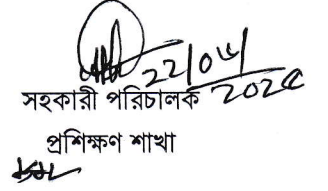 22/04/2025
সহকারী পরিচালক
প্রশিক্ষণ শাখা